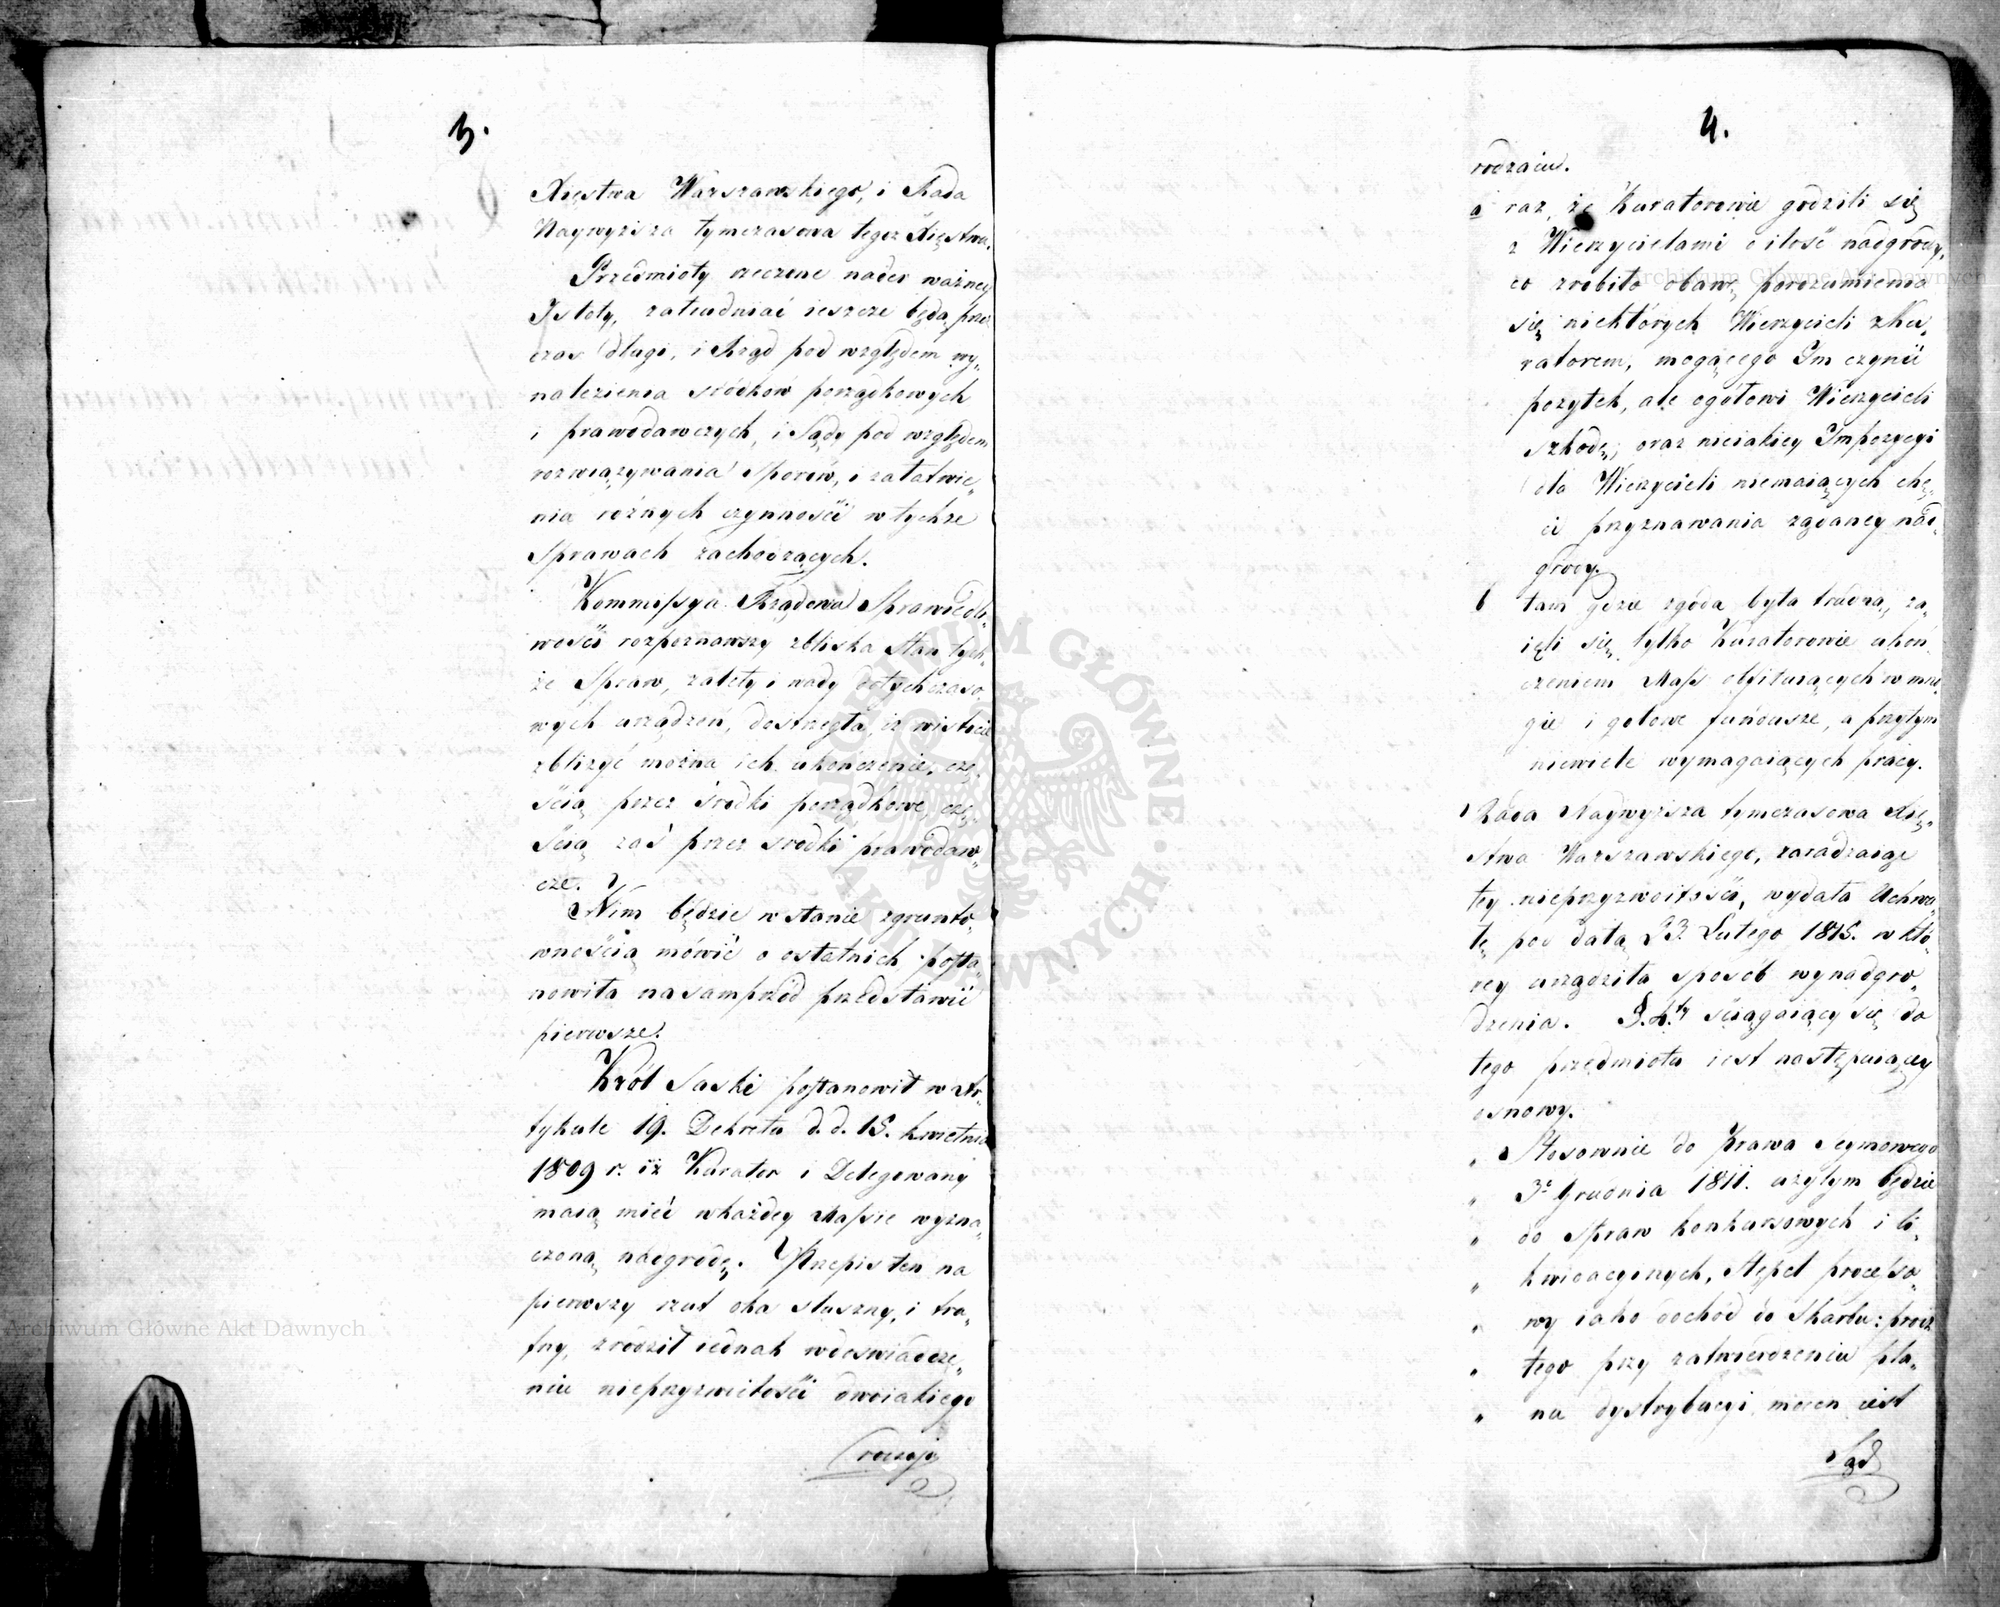 3.
Xięstwa Warszawskiego, i Rada
Naywyższa tymczasowa tegoż Xięstwa.
Przedmioty rzeczone nader ważney
Istoty, zatrudniać ieszcze będą przez
czas długi, i Rząd pod względem wy„
nalezienia środków porządkowych
i prawodawczych, i Sądy pod względem
rozwiązywania Sporów, i załatwie„
nia różnych czynnośći w tychże
Sprawach zachodzących.
Kommissya Rządowa Sprawiedli„
wośći rozpoznawszy zbliska Stan tych„
że Spraw, zalety i wady dotychczaso
wych urządzeń, dostrzegła, iż wistocie
zbliżyć można ich ukończenie, czę„
śćią przez środki porządkowe, czę„
śćią zaś przez środki prawodaw„
cze.
Nim będzie w stanie zgrunto„
wnośćią mówić o ostatnich posta„
nowiła nasamprzód przedstawić
pierwsze.
Król Saski postanowił w Ar„
tykule 19. Dekretu d. d. 15. kwietnia
1809 r. iż Kurator i Delegowany
maią mieć w każdey Massie wyzna„
czoną nadgrodę. Przepis ten na
pierwszy rzut oka słuszny, i tra„
fny, zrodził iednak w doswiadcze„
niu nieprzyzwoitośći dwoiakiego
rodzaju
4.
rodzaiu.
a raz, że Kuratorowie godzili się
z Wierzycielami o ilość nadgrody,
co zrobiło obawę porozumienia
się niektórych Wierzycieli z Ku„
ratorem, mogącego Im czynić
pożytek, ale ogółowi Wierzycieli
szkodę; oraz nieiakiey Impozycyi
dla Wierzycieli niemaiących chę„
ci przyznawania żądaney nad„
grody.
b tam gdzie zgoda była trudną, za„
ięli się tylko Kuratorowie ukoń„
czeniem Mass obfituiących w mno„
gie i gotowe fundusze, a przytym
niewiele wymagaiących pracy.
Rada Naywyższa tymczasowa Xię„
stwa Warszawskiego, zaradzaiąc
tey nieprzyzwoitośći, wydała Uchwa„
łę pod datą 23. Lutego 1815. w któ„
rey urządziła sposób wynadgro„
dzenia. §. 4.ty śćiągaiący się do
tego przedmiotu iest następuiącey
osnowy.
„ Stosownie do Prawa Seymowego
„ 3° Grudnia 1811. użytym będzie
„ do Spraw konkursowych i li„
„ kwidacyinych, Stępel processo„
„ wy iako dochód do Skarbu: prócz
„ tego przy zatwierdzeniu pla„
„ nu dystrybucyi mocen iest
Sąd
Archiwum Główne Akt Dawnych
Archiwum Główne Akt Dawnych
ARCHIWUM GŁÓWNE AKT DAWNYCH